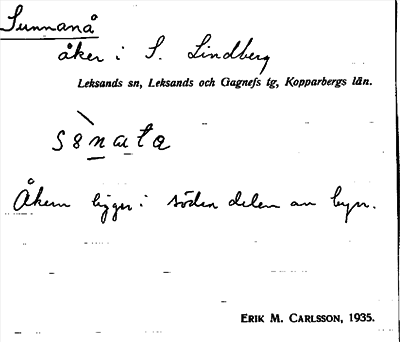 Sunnanå
åker i S. Lindberg
Leksands sn, Leksands och Gagnefs tg, Kopparbergs län.
Åkern ligger i södra delen av byn.
ERIK M. CARLSSON, 1935.